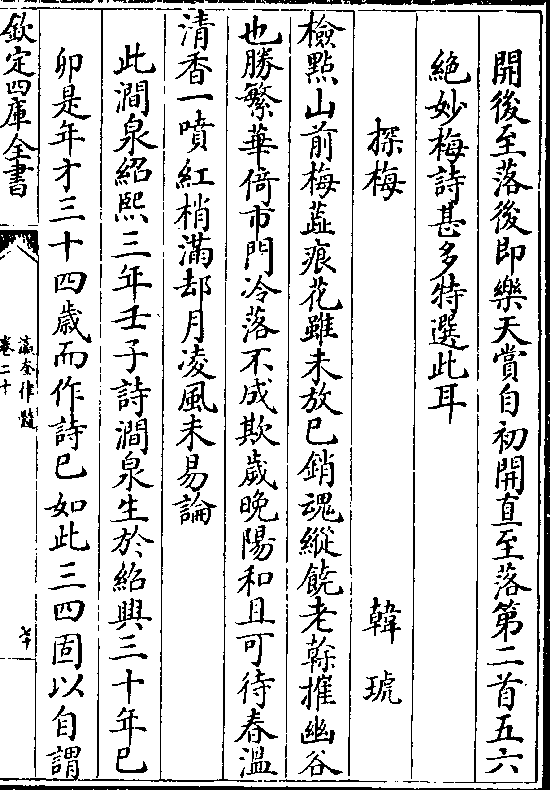 開後至落後即樂天賞自初開直至落第二首五六
絶妙梅詩甚多特選此耳
探梅 韓琥
檢點山前梅蕋痕花雖未放已銷魂縱饒老榦摧幽谷
也勝繁華倚市門冷落不成欺歲晚陽和且可待春溫
清香一噴紅梢滿却月凌風未易論
此澗泉紹熙三年壬子詩澗泉生於紹興三十年巳
卯是年才三十四歲而作詩已如此三四固以自謂
欽定四庫全書
瀛奎律髓
卷二十